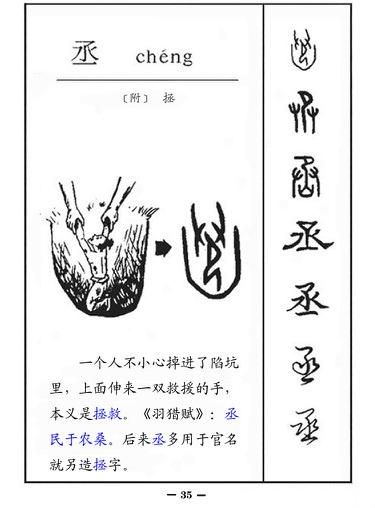 丞 chéng
〔附〕 拯
一个人不小心掉进了陷坑
里，上面伸来一双救援的手，
本义是拯救。《羽猎赋》：丞
民于农桑。后来丞多用于官名
就另造拯字。
— 35 —